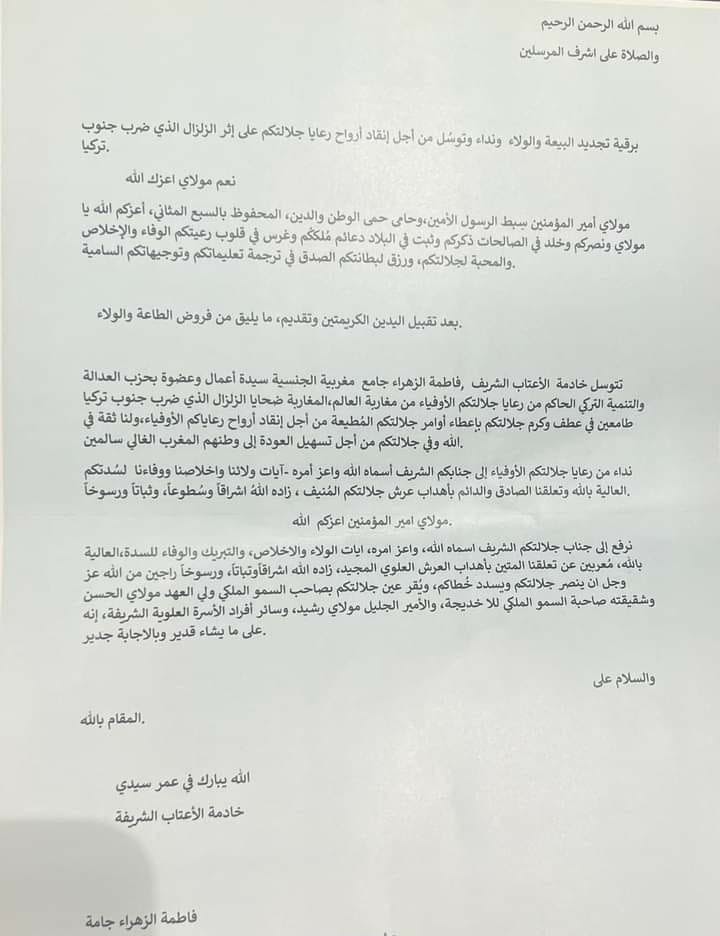 بسم الله الرحمن الرحيم
والصلاة على اشرف المرسلين
برقية تجديد البيعة والولاء ونداء وتوسُل من أجل إنقاد أرواح رعايا جلالتكم على إثر الزلزال الذي ضرب جنوب
تركيا.
نعم مولاي اعزك الله
مولاي أمير المؤمنين سِبط الرسول الأمين،وحامى حمى الوطن والدين، المحفوظ بالسبع المثاني، أعزكم الله يا
مولاي ونصركم وخلد في الصالحات ذكركم وثبت في البلاد دعائم مُلككُم وغرس في قلوب رعيتكم الوفاء والإخلاص
والمحبة لجلالتكم، ورزق لبطانتكم الصدق في ترجمة تعليماتكم وتوجيهاتكم السامية.
بعد تقبيل اليدين الكريمتين وتقديم، ما يليق من فروض الطاعة والولاء.
تتوسل خادمة الأعتاب الشريف ,فاطمة الزهراء جامع مغربية الجنسية سيدة أعمال وعضوة بحزب العدالة
والتنمية التركي الحاكم من رعايا جلالتكم الأوفياء من مغاربة العالم،المغاربة ضحايا الزلزال الذي ضرب جنوب تركيا
طامعين في عطف وكرم جلالتكم بإعطاء أوامر جلالتكم المُطيعة من أجل إنقاد أرواح رعاياكم الأوفياء،ولنا ثقة في
الله وفي جلالتكم من أجل تسهيل العودة إلى وطنهم المغرب الغالي سالمين.
نداء من رعايا جلالتكم الأوفياء إلى جنابكم الشريف أسماه الله واعز أمره -آيات ولائنا واخلاصنا ووفاءنا لسُدتكم
العالية بالله وتعلقنا الصادق والدائم بأهداب عرش جلالتكم المُنيف ، زاده اللهُ اشراقاً وسُطوعاً، وثباتاً ورسوخاً.
مولاي امير المؤمنين اعزكم الله.
نرفع إلى جناب جلالتكم الشريف اسماه الله، واعز امره، ايات الولاء والاخلاص، والتبريك والوفاء للسدة،العالية
بالله، مُعربين عن تعلقنا المتين بأهداب العرش العلوي المجيد، زاده الله اشراقاوثباتاً، ورسوخاً راجين من الله عز
وجل ان ينصر جلالتكم ويسدد خُطاكم، ويُقر عين جلالتكم بصاحب السمو الملكي ولي العهد مولاي الحسن
وشقيقته صاحبة السمو الملكي للا خديجة، والأمير الجليل مولاي رشيد، وسائر أفراد الأسرة العلوية الشريفة، إنه
على ما يشاء قدير وبالاجابة جدير.
والسلام على
المقام بالله.
الله يبارك في عمر سيدي
خادمة الأعتاب الشريفة
فاطمة الزهراء جامة